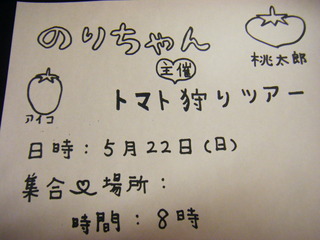 のりちゃん
主催
桃太郎
アイコ
トマト狩りツアー
日時:5月22日(日)
集合♡場所:
時間:8時